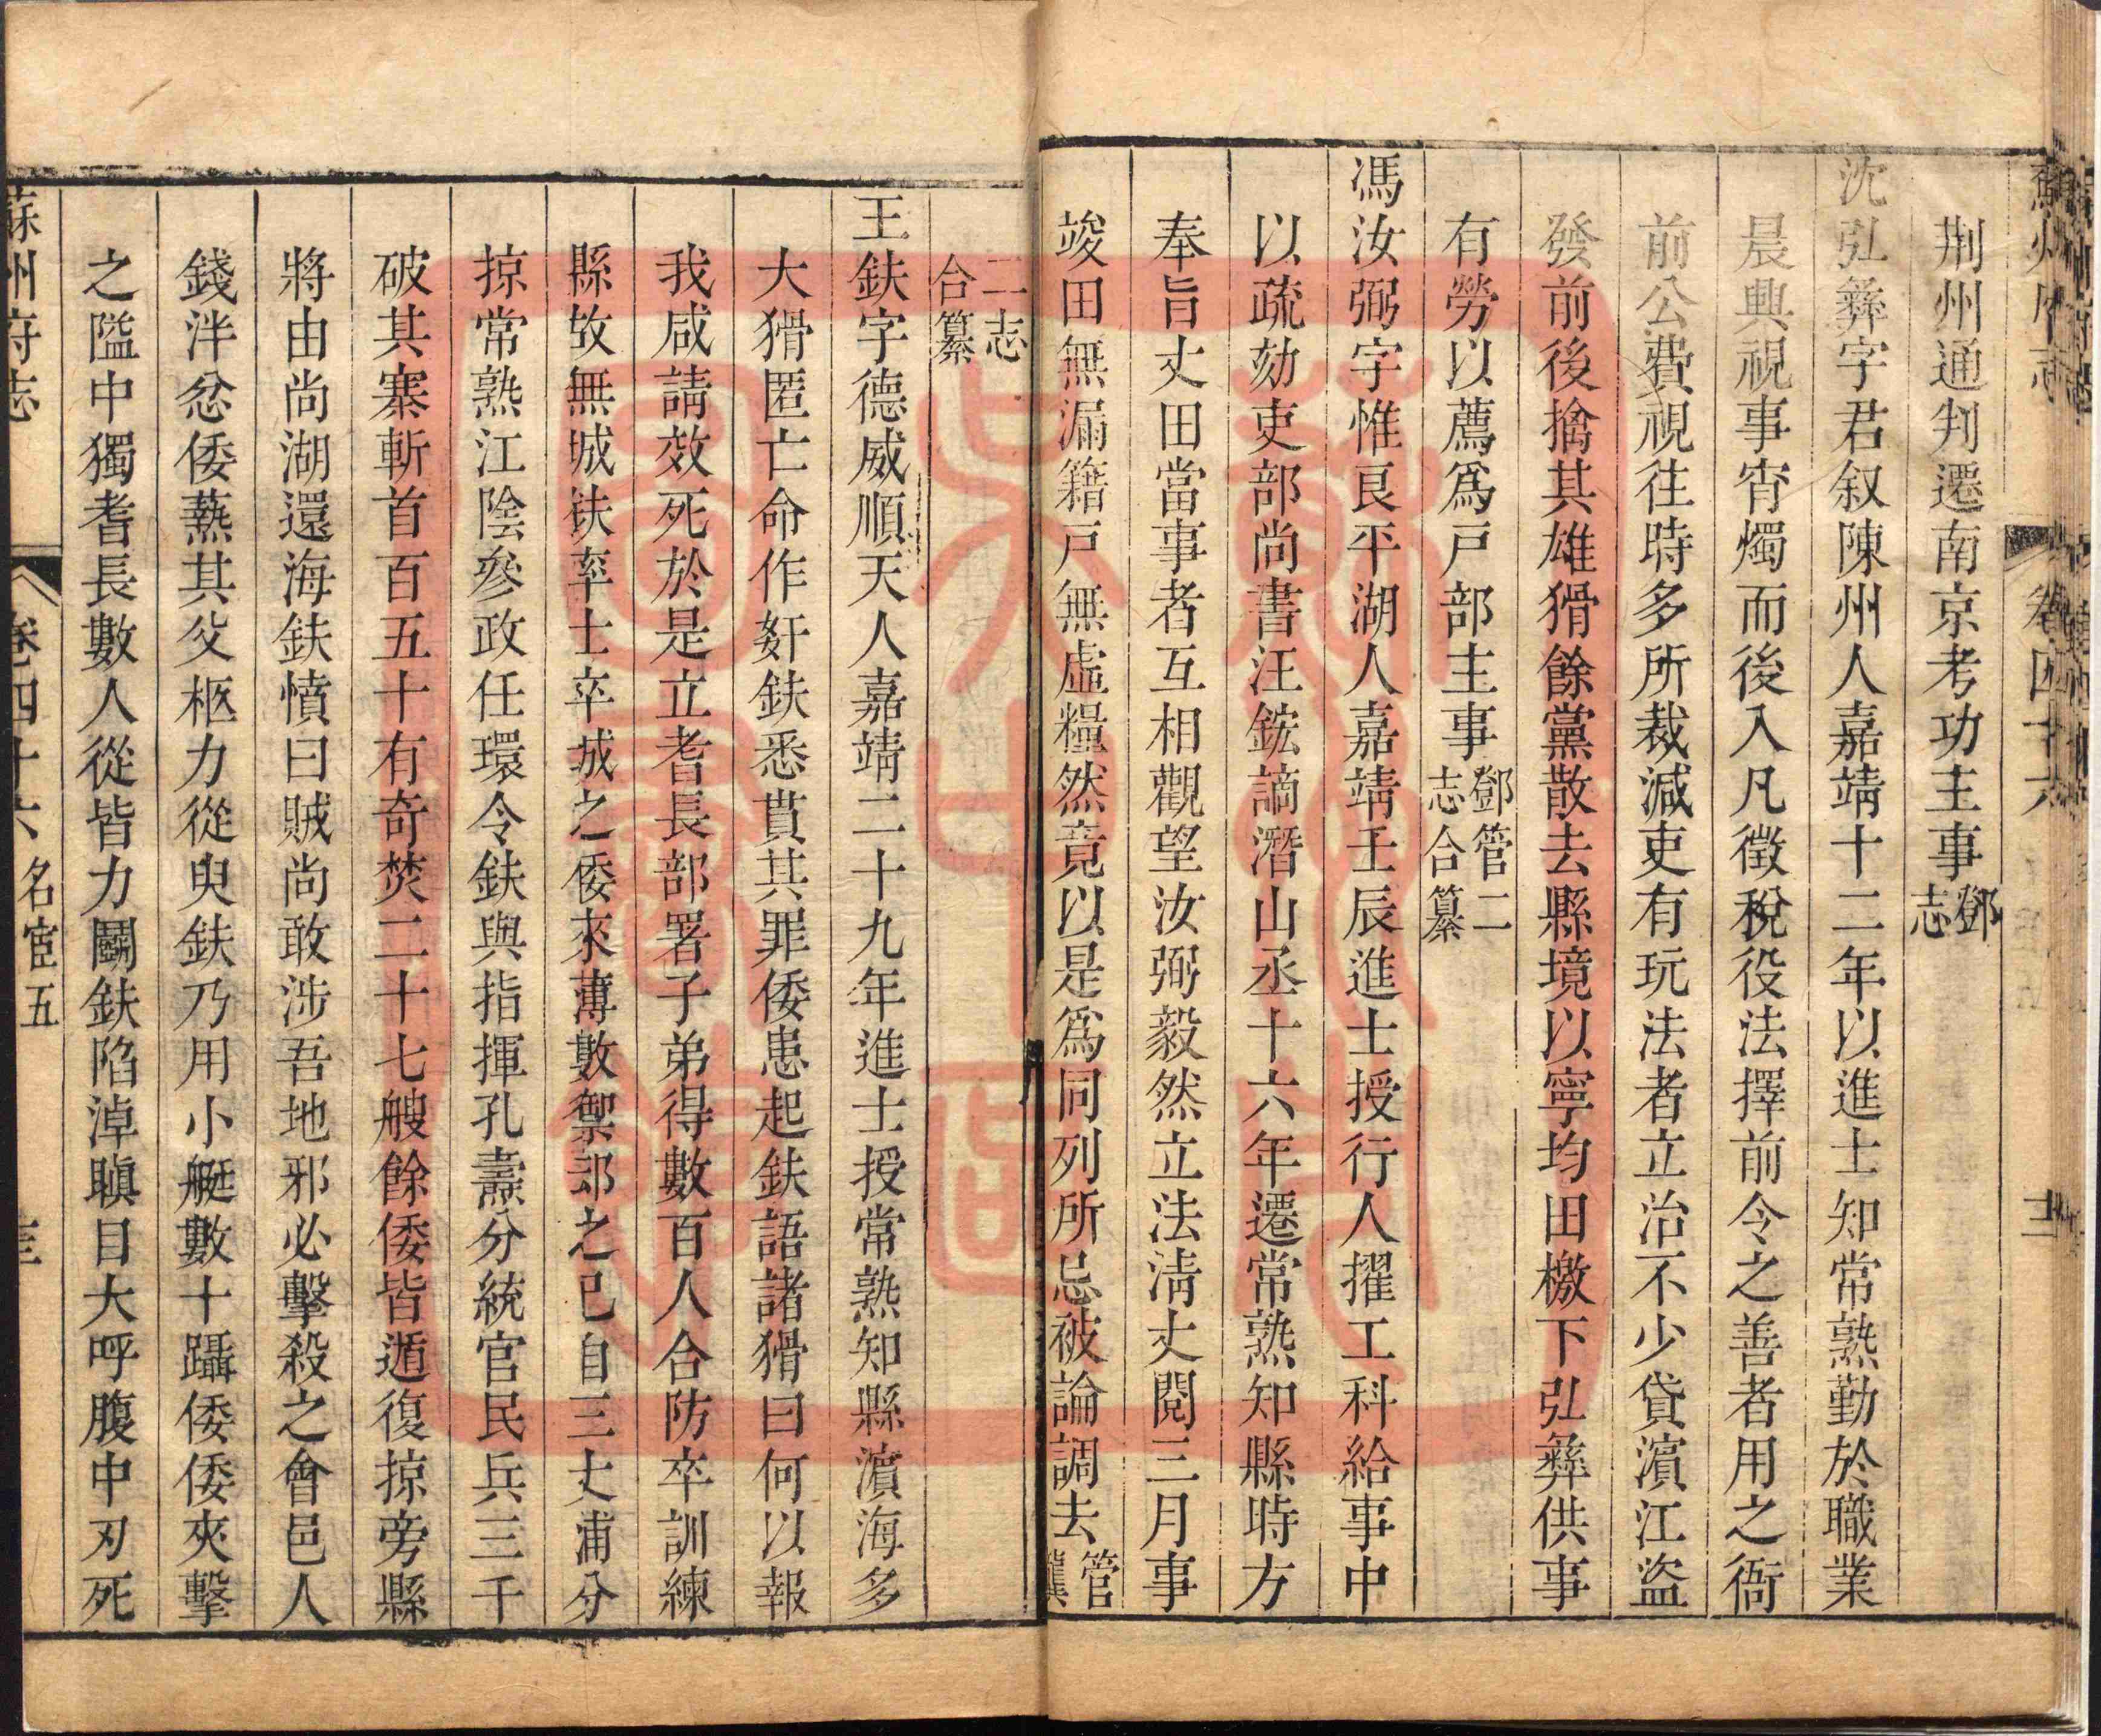 蘇州府志 卷四十六
荆州通判遷南京考功主事鄧志
沈弘彝字君叙陳州人嘉靖十二年以進士知常熟勤於職業
晨興視事宵燭而後入凡徵稅役法擇前令之善者用之衙
前公費視往時多所裁減吏有玩法者立治不少貸濱江盜
發前後擒其雄猾餘黨散去縣境以寧均田檄下弘彝供事
有勞以薦爲戸部主事鄧管二志合纂
馮汝弼字惟良平湖人嘉靖壬辰進士授行人擢工科給事中
以疏劾吏部尚書汪鋐謫潛山丞十六年遷常熟知縣時方
奉旨丈田當事者互相觀望汝弼毅然立法淸丈閱三月事
竣田無漏籍戸無虛糧然竟以是爲同列所忌被論調去管龔
二志合纂
王鈇字德威順天人嘉靖二十九年進士授常熟知縣濵海多
大猾匿亡命作奸鈇悉貰其罪倭患起鈇語諸猾曰何以報
我咸請效死於是立耆長部署子弟得數百人合防卒訓練
縣故無城鈇率士卒城之倭來薄數禦郤之已自三丈浦分
掠常熟江陰參政任環令鈇與指揮孔燾分統官民兵三千
破其寨斬首百五十有奇焚二十七艘餘倭皆遁復掠旁縣
將由尚湖還海鈇憤曰賊尚敢涉吾地邪必擊殺之會邑人
錢泮忿倭爇其父柩力從臾鈇乃用小艇數十躡倭倭夾擊
之隘中獨耆長數人從皆力鬬鈇陷淖瞋目大呼腹中刃死
蘇州府志 卷四十六 名宦五